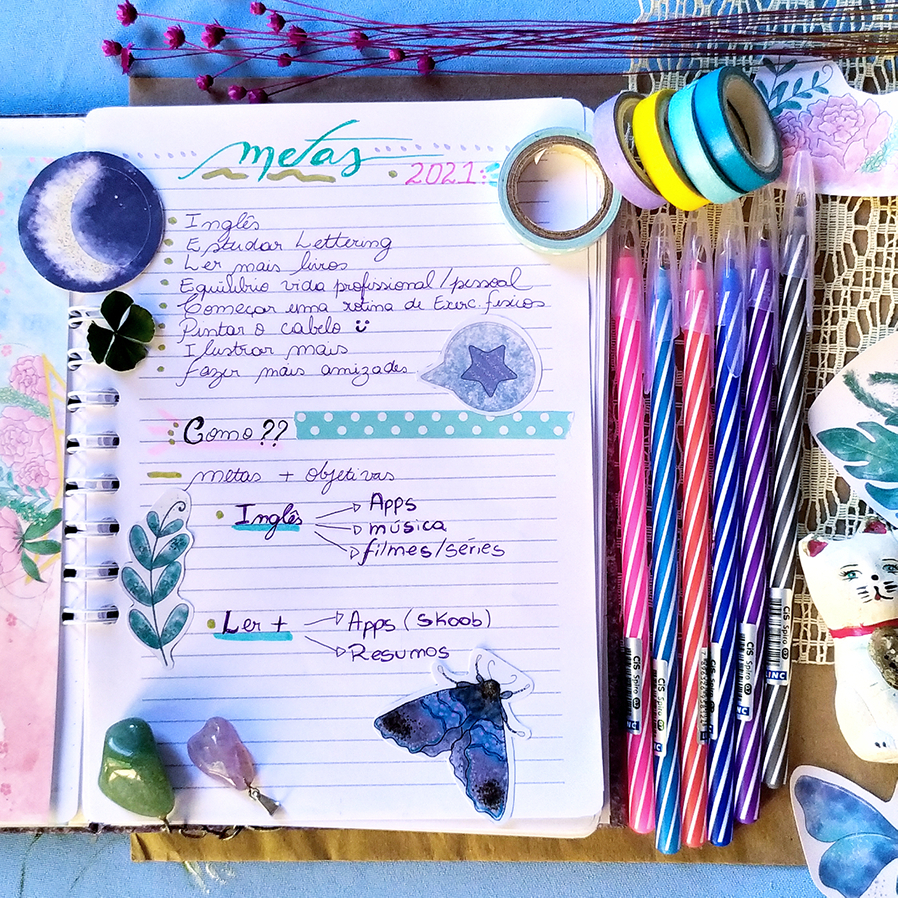 metas
2021:
Inglês
Estudar Lettering
Ler mais livros
Equilíbrio vida profissional/pessoal
Começar uma rotina de Exerc. físicos
Pintar o cabelo
Ilustrar mais
fazer mais amizades
Como??
metas + objetivos
Inglês
Apps
música
filmes/séries
Ler +
Apps (skoob)
Resumos
CiS Spiro
CiS Spiro
CiS Spiro
CiS Spiro
INC